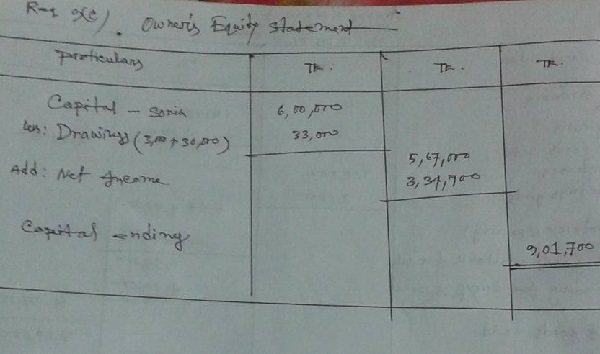 Req of(c)/. Owner's Equity Statement
Particulars TK. TK. TK.
Capital - Sonia 6,00,000
Less: Drawings (3,000 + 30,000) 33,000
5,67,000
Add: Net Income 3,34,700
Capital ending 9,01,700